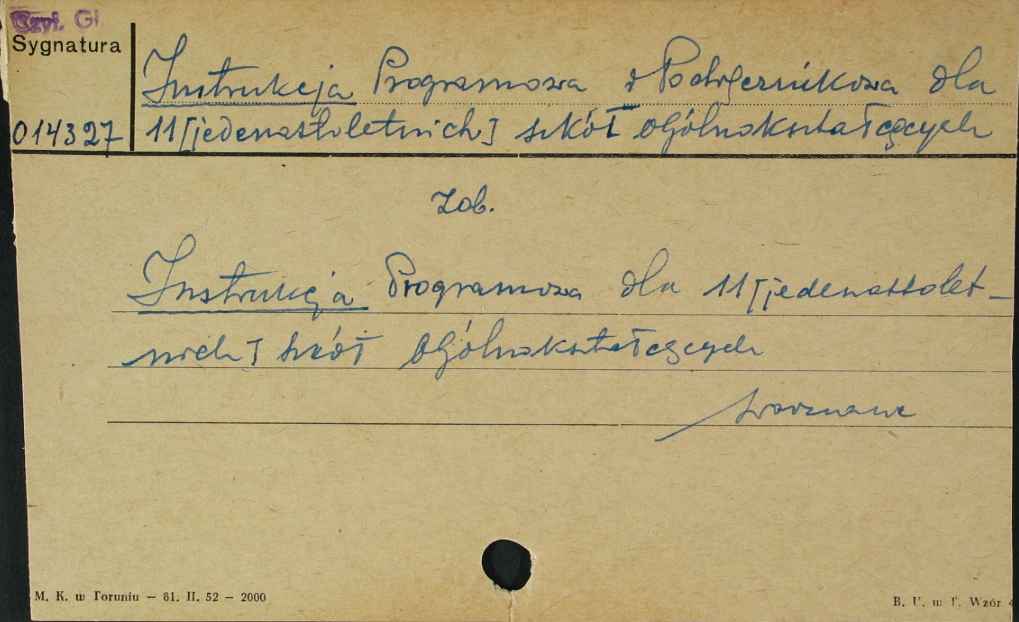 Czyt. Gł
Sygnatura
Instrukcja Programowa i Podręcznikowa dla
014327 11[jedenastoletnich] szkół ogólnokształcących
Zob.
Instrukcja Programowa dla 11[jedenastolet-
nich] szkół ogólnokształcących
M. K. w Toruniu — 81. II. 52 — 2000
B. U. w T. Wzór